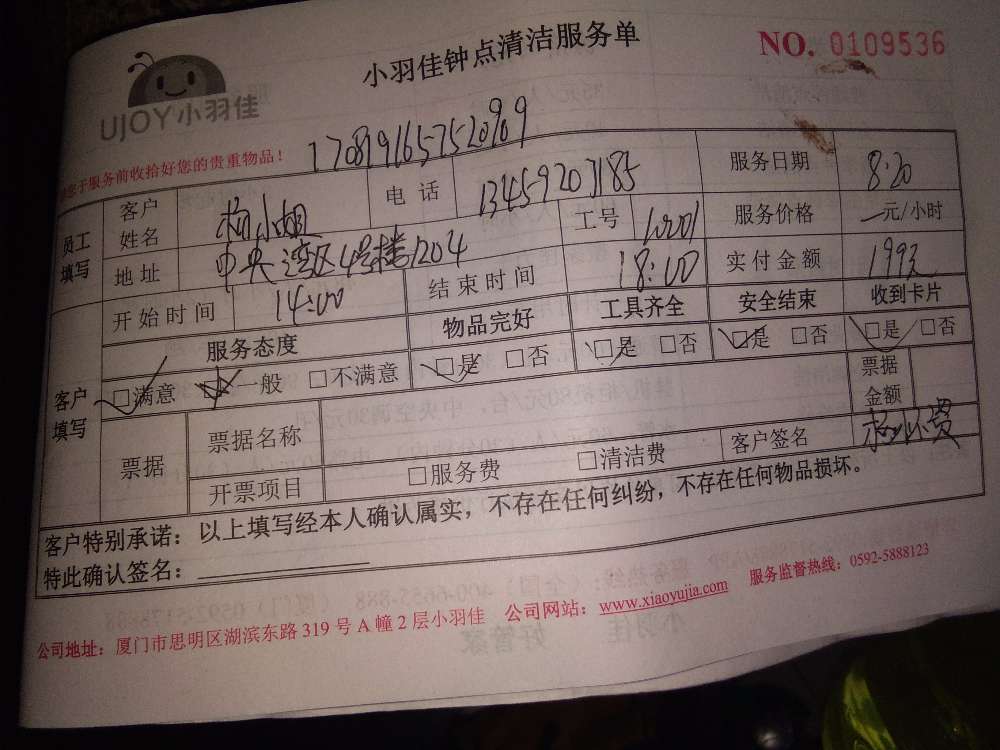 小羽佳钟点清洁服务单
NO. 0109536
UJOY小羽佳
于服务前收拾好您的贵重物品！
1708191657520969
员工填写
客户姓名 杨小姐 电话 13459203185 服务日期 8.20
地址 中央湾区4号楼1204 工号 服务价格 元/小时
开始时间 14:00 结束时间 18:00 实付金额
客户填写
服务态度 物品完好 工具齐全 安全结束 收到卡片
□满意 □一般 □不满意 □是 □否 □是 □否 □是 □否 □是 □否
票据 票据名称 票据金额
开票项目 □服务费 □清洁费 客户签名
客户特别承诺：以上填写经本人确认属实，不存在任何纠纷，不存在任何物品损坏。
特此确认签名：
公司地址：厦门市思明区湖滨东路 319 号 A 幢 2 层小羽佳 公司网站：www.xiaoyujia.com 服务监督热线：0592-5888123